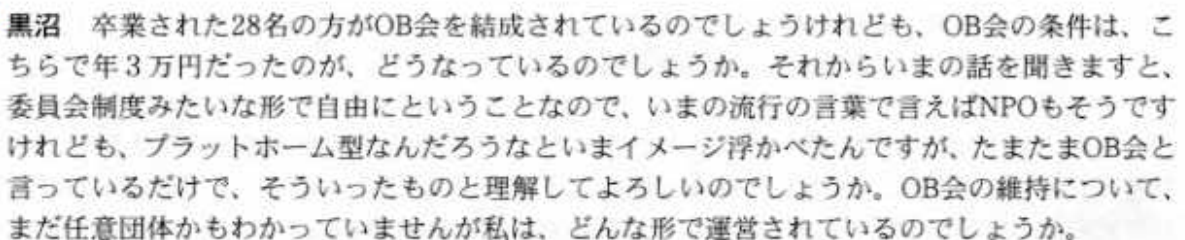 黒沼　卒業された28名の方がOB会を結成されているのでしょうけれども、OB会の条件は、こ
ちらで年３万円だったのが、どうなっているのでしょうか。それからいまの話を聞きますと、
委員会制度みたいな形で自由にということなので、いまの流行の言葉で言えばNPOもそうです
けれども、プラットホーム型なんだろうなといまイメージ浮かべたんですが、たまたまOB会と
言っているだけで、そういったものと理解してよろしいのでしょうか。OB会の維持について、
まだ任意団体かもわかっていませんが私は、どんな形で運営されているのでしょうか。